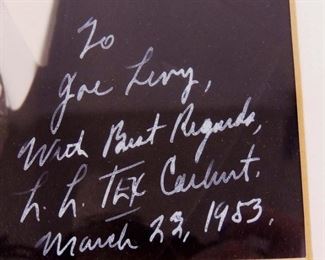 To
Joe Levy,
With Best Regards,
L. L. TEX
March 23, 1953.